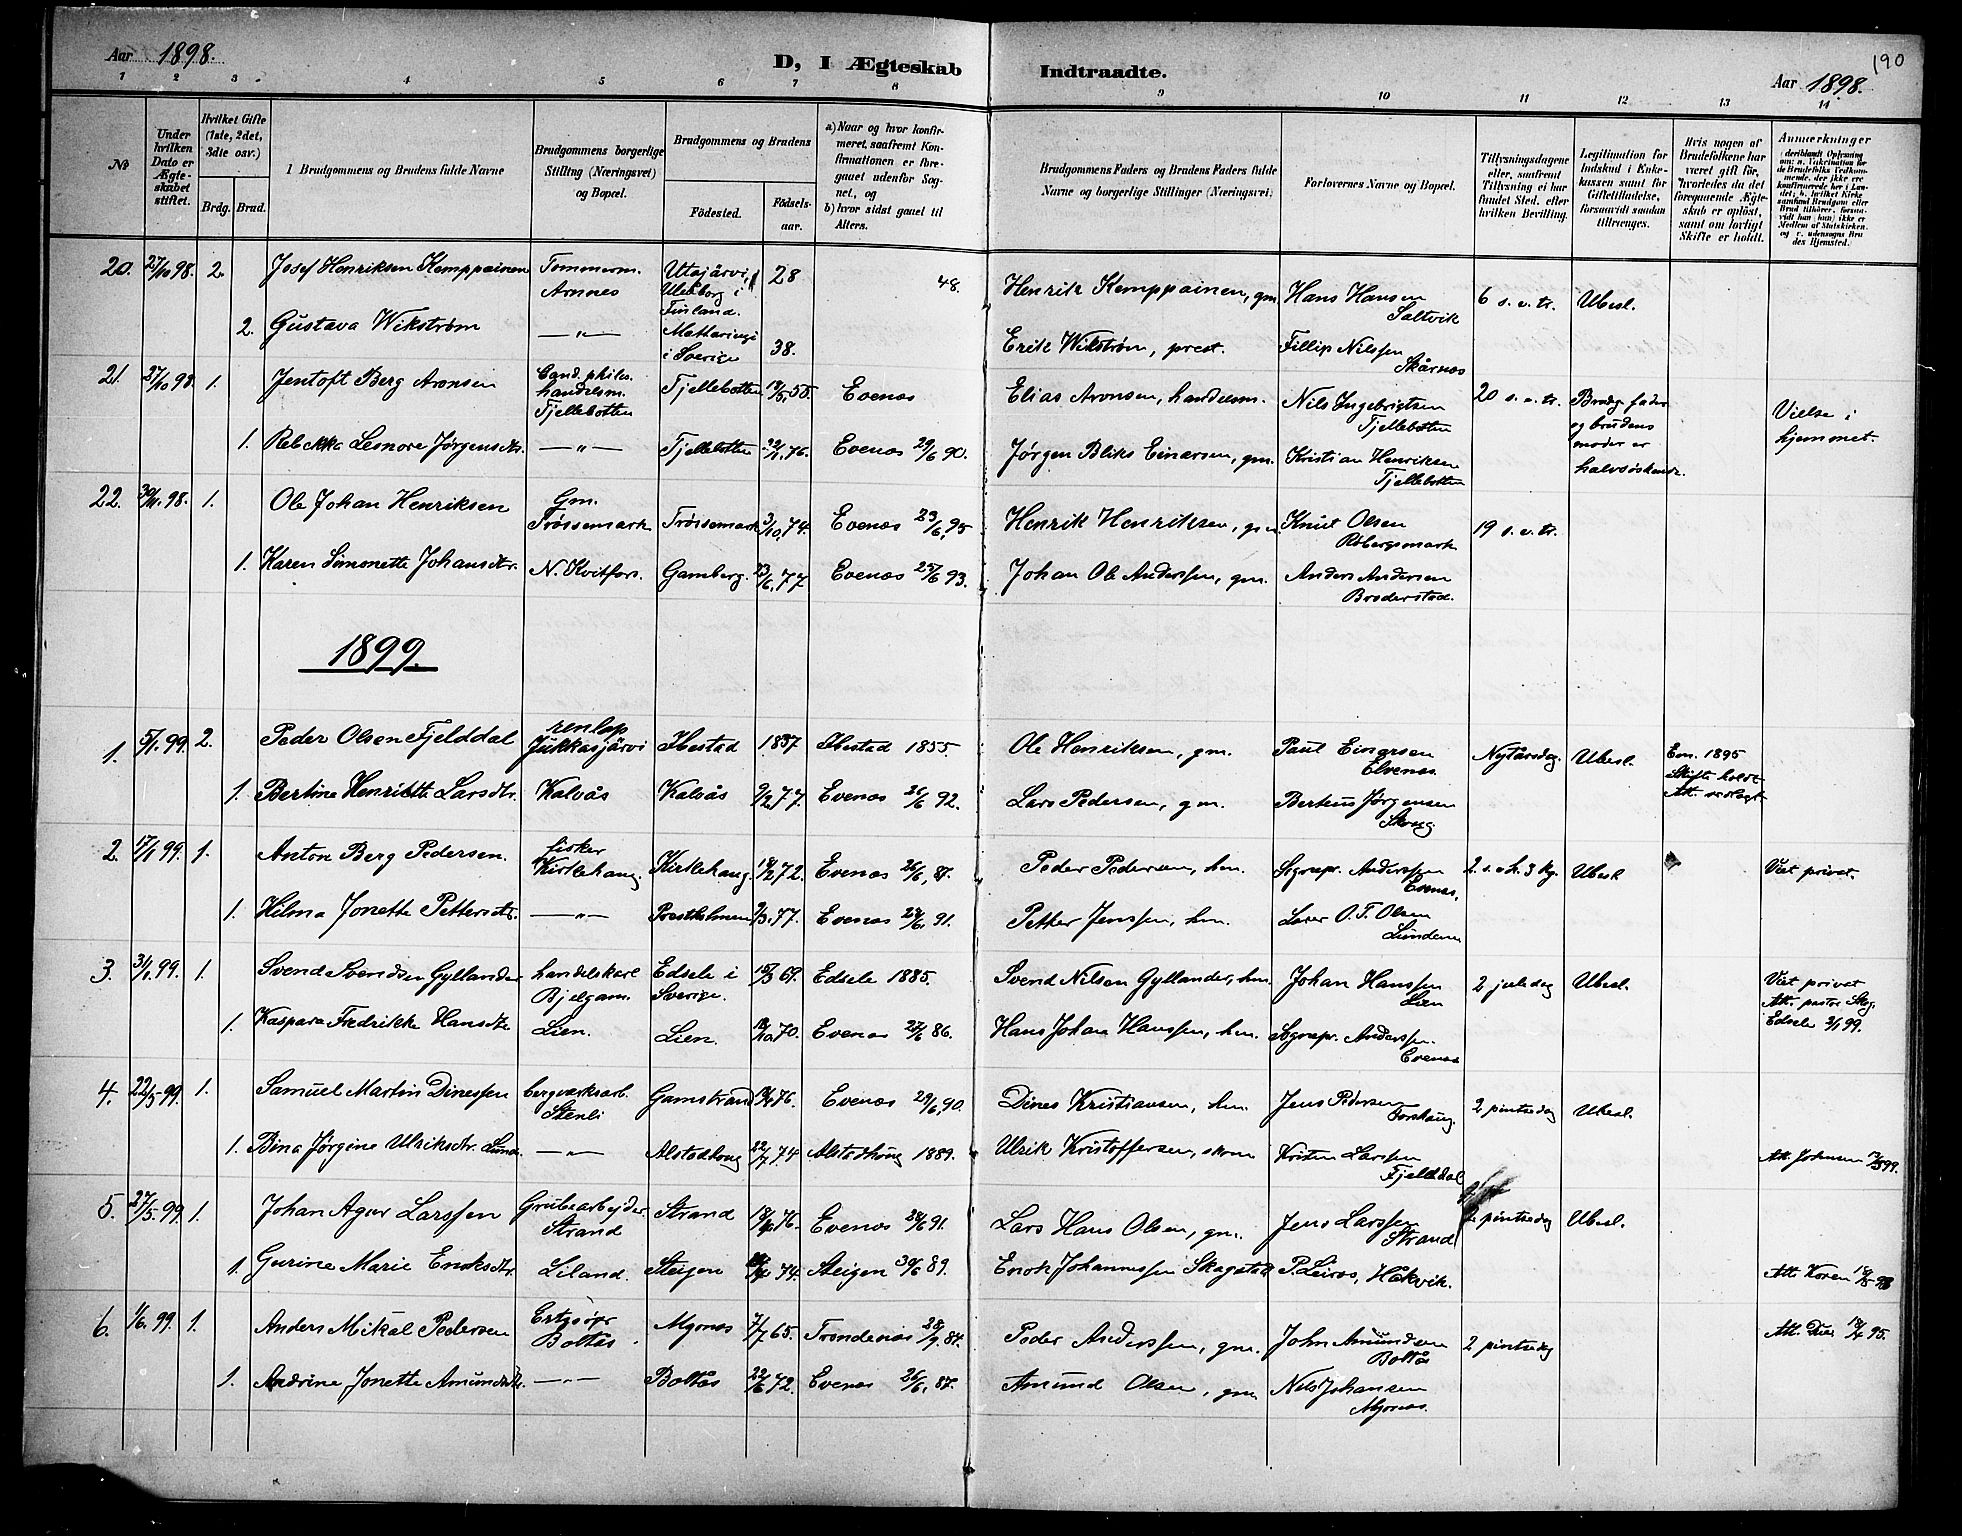 Aar 1898.
D, I Ægteskab Indtraadte.
190
Aar 1898.
1 2 3 4 5 6 7 8 9 10 11 12 13 14
No
Under hvilken Dato er Ægteskabet stiftet.
Hvilket Gifte (1ste, 2det, 3die osv.)
Brdg. Brud.
Brudgommens og Brudens fulde Navne
Brudgommens borgerlige Stilling (Næringsvei) og Bopæl.
Brudgommens og Brudens
Fødested.
Fødselsaar.
a) Naar og hvor konfirmeret, saafremt Konfirmationen er foregaaet udenfor Sognet, og
b) hvor sidst gaaet til Alters.
Brudgommens Faders og Brudens Faders fulde Navne og borgerlige Stillinger (Næringsvei)
Forlovernes Navne og Bopæl.
Tillysningsdagene eller, saafremt Tillysning ei har fundet Sted, efter hvilken Bevilling.
Legitimation for Indskud i Enkekassen samt for Giftetilladelse, forsaavidt saadan tiltrænges.
Hvis nogen af Brudefolkene har været gift før, hvorledes da det foregaaende Ægteskab er opløst, samt om lovligt Skifte er holdt.
Anmærkninger
20. 27/10 98. 2. Josef Henriksen Kemppainen Tømmerm. Arnnes Utajärvi, Uleåborg i Finland. 28 48. Henrik Kemppainen, gm. Hans Hansen Saltvik 6 s. e. tr. Ubesl.
2. Gustava Wikstrøm —„— Mattaringi i Sverige 38. Erik Wikstrøm, prest. Fillip Nilssen Skårnes
21. 27/10 98. 1. Jentoft Berg Aronsen Cand. philos. handelsm. Fjellebotten Fjellebotten 18/5, 55. Evenes Elias Aronsen, handelsm. Nils Ingebrigtsen Fjellebotten 20 s. e. tr. Brudg. fader og brudens moder er halvsøskende. Vielse i hjemmet.
1. Rebekka Leonore Jørgensdtr. —„— Fjellebotten 22/11, 76. Evenes 29/6 90. Jørgen Bliks Einarsen, gm. Kristian Henriksen Fjellebotten
22. 30/11. 98. 1. Ole Johan Henriksen Gm. Trøssemark Trøssemark 3/10, 74. Evenes 23/6, 95 Henrik Henriksen, gm. Knut Olsen Røbergsmark 19 s. e. tr.
1. Karen Simonette Johansdtr. N. Kvitfors. Gamberg. 23/6, 77 Evenes 25/6 93. Johan Ole Anderssen, gm. Anders Andersen Broderstad.
1899.
1. 5/1. 99. 2. Peder Olsen Fjelddal renlap Jukkasjärvi Ibestad 1837 Ibestad 1855 Ole Henriksen, gm. Paul Einarsen Elvenes. Nytårsdag. Ubesl. Em. 1895 Skifte holdt Att. vedlagt
1. Bertine Henriette Larsdtr. Kalvås Kalvås 9/2 77. Evenes 26/6 92. Lars Pedersen, gm. Berteus Jørgensen Skoug
2. 17/1 99. 1. Anton Berg Pedersen. fisker Kirkehaug Kirkehaug. 18/2 72. Evenes 26/6, 87. Peder Pedersen, hm. Sognepr. Anderssen Evenes. 2. s. e. h. 3 kg. Ubesl. Viet privat.
1. Hilma Jonette Pettersdtr. —„— Prestholmen 9/3. 77. Evenes 28/6, 91. Petter Jenssen, hm. Lærer O. T. Olsen Lundene
3. 31/1. 99. 1. Svend Svendsen Gyllander handelskarl Bjelgam. Edsele i Sverige. 18/3 68. Edsele 1885. Svend Nilsen Gyllander, hm. Johan Hanssen Lien 2 juledag Ubesl. Viet privat Att. pastor Skog. Edsele 2/1 99.
1. Kaspara Fredrikke Hansdtr Lien. Lien. 18/10 70. Evenes 27/6 86. Hans Johan Hanssen, hm. Sognepr. Anderssen. Evenes
4. 22/5 99. 1. Samuel Martin Dinessen bergverksarb. Stenli Gamstrand 76. Evenes 29/6, 90. Dines Kristiansen, hm. Jens Pedersen Forshaug. 2 pintsedag Ubesl.
1. Bina Jørgine Ulriksdtr. Lund. —„— Alstadhoug 22/7 74 Alstadhoug 1889. Ulrik Kristoffersen, skom Kristen Larssen Fjelddal Att. Johnsen 99.
5. 27/5. 99. 1. Johan Ager Larssen Grubearbejder. Strand Strand 76. Evenes 28/6 91. Lars Hans Olsen, gm. Jens Larssen Strand 2 pintsedag Ubesl.
1. Gurine Marie Enoksdtr. Liland. Steigen 74. Steigen 30/6 89. Enok Johannessen Skagstad P. Leiros, Håkvik. Att. Koren
6. 1/6. 99. 1. Anders Mikal Pedersen Boltås Myrnes 7/7 65. Trondenes 28/9. 84. Peder Anderssen, gm. John Amundsen Boltås 2 pintsedag Att. 95.
1. Andrine Jonette Amundsdtr. —„— Boltås 22/6 72. Evenes 26/6, 87. Amund Olsen, gm. Nils Johansen Myrnes.